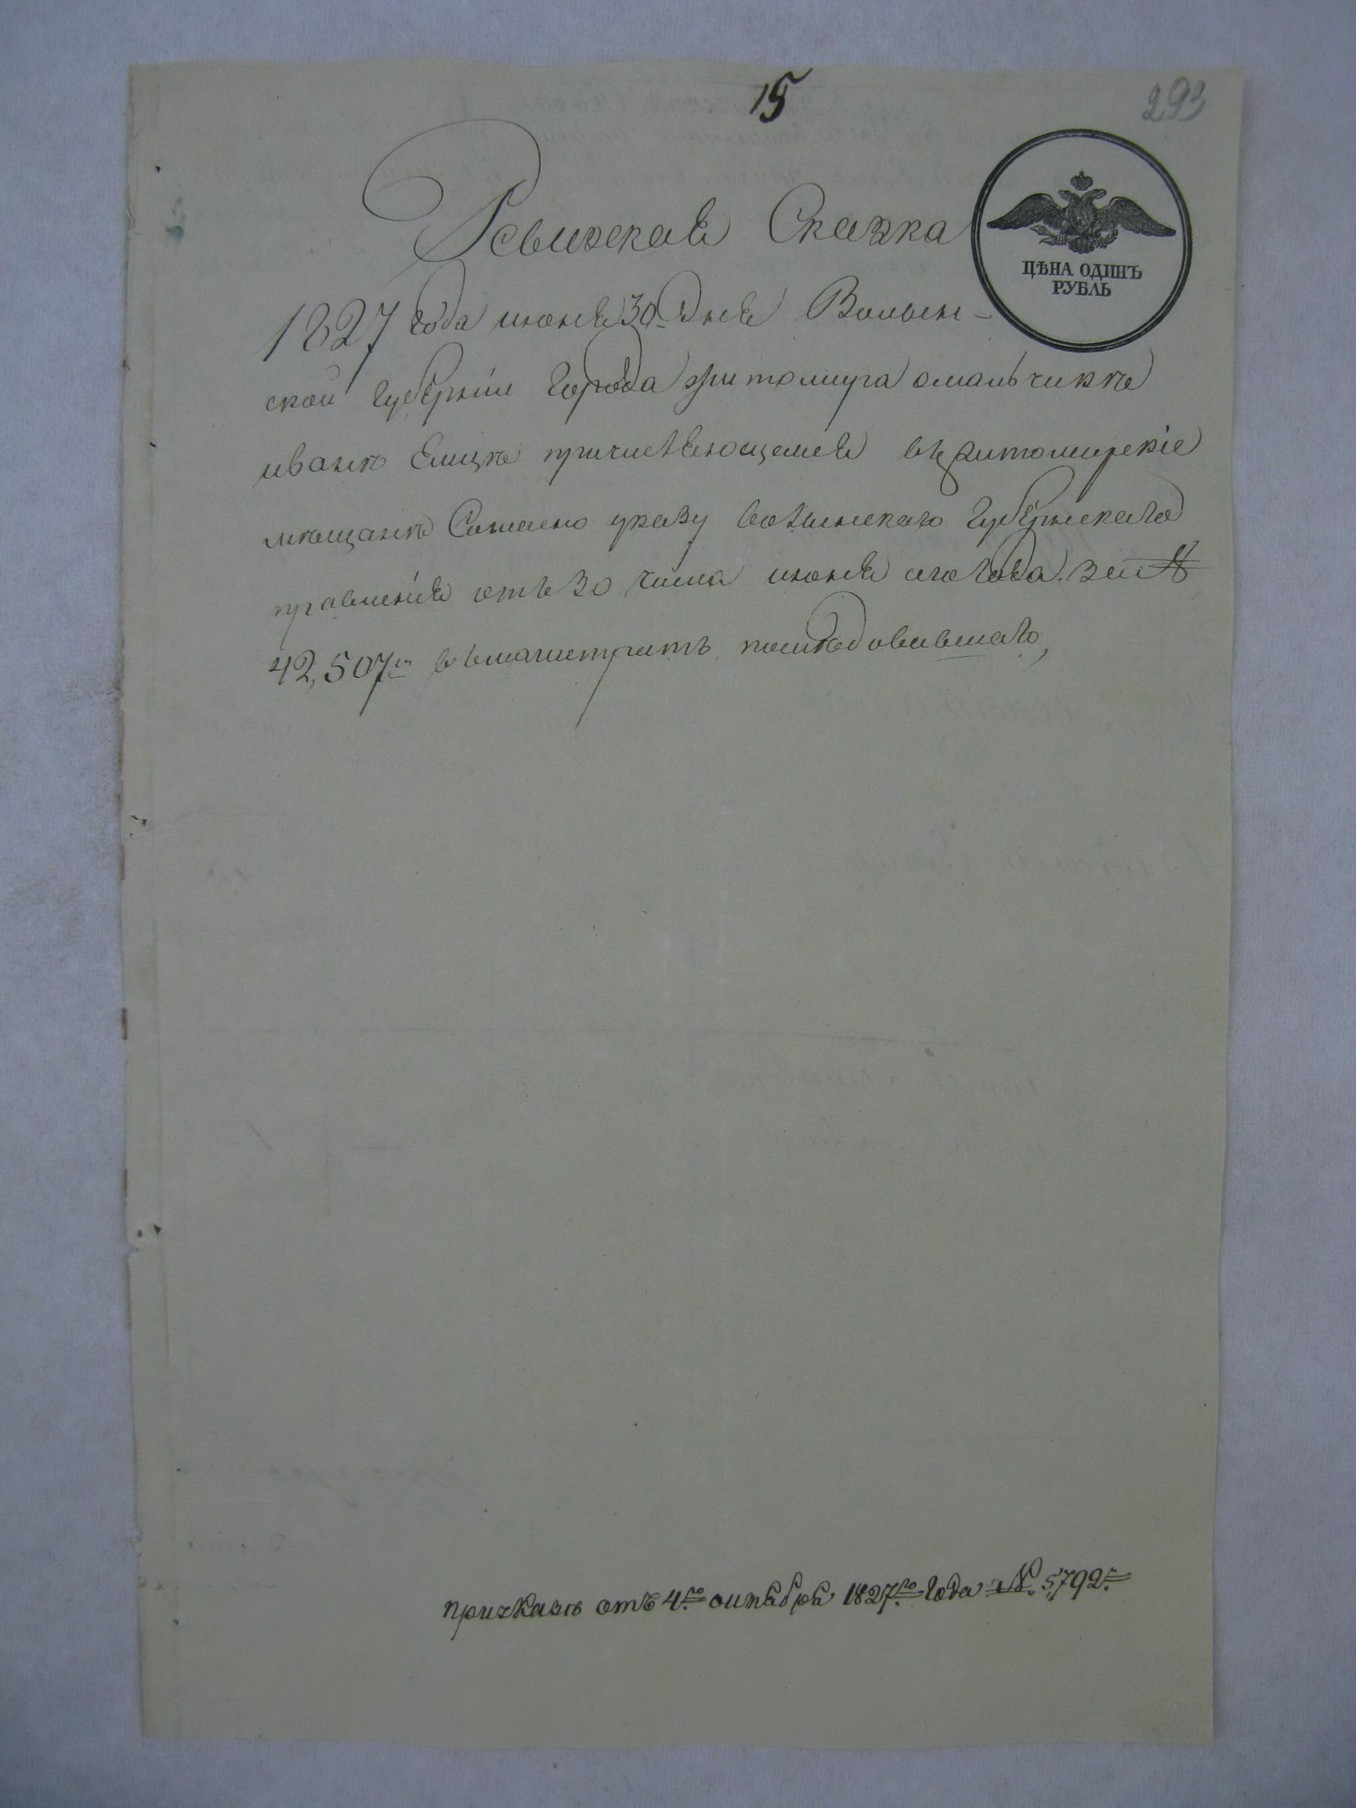 15
293
Ревизская Сказка
ЦѢНА ОДИНЪ
РУБЛЬ
1827 года июня 30 дня Волын-
ской губернии города житомира омальчикѣ
иванѣ причисляющемся въ житомирскіе
мѣщанѣ Согласно указу волынскаго губернскаго
правленія отъ 30 числа июня сего года за №
42,507м вмагистратъ последовавшаго,
приказъ отъ 4го октября 1827го года № 5792м